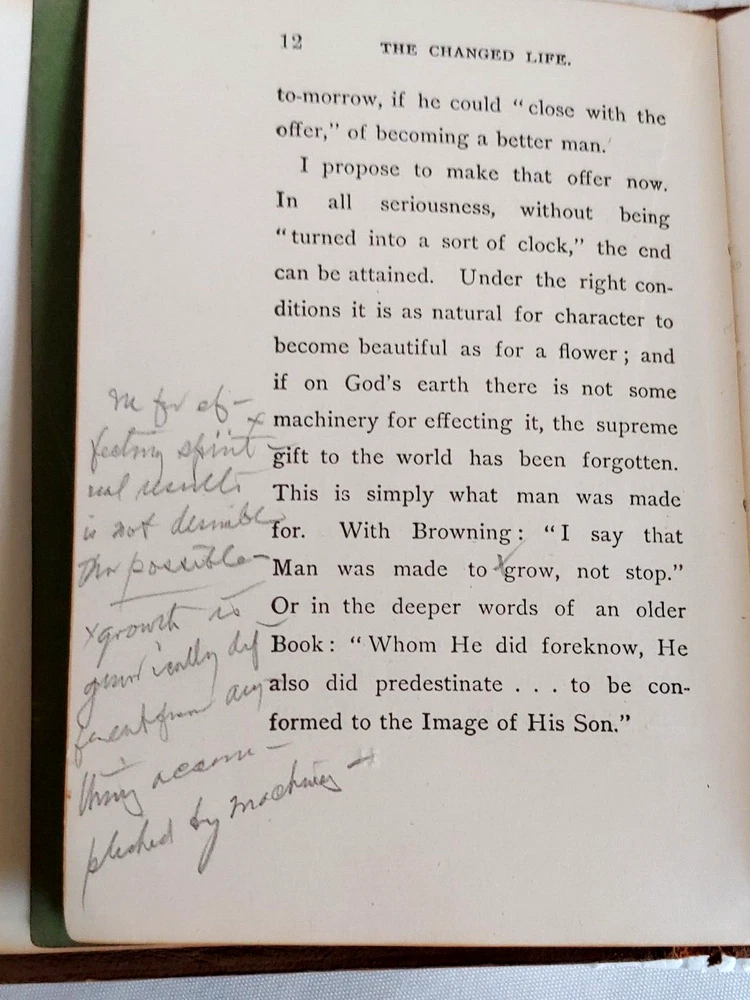 12 THE CHANGED LIFE.
to-morrow, if he could “close with the
offer,” of becoming a better man.
I propose to make that offer now.
In all seriousness, without being
“turned into a sort of clock,” the end
can be attained. Under the right con-
ditions it is as natural for character to
become beautiful as for a flower; and
if on God's earth there is not some
machinery for effecting it, the supreme
gift to the world has been forgotten.
This is simply what man was made
for. With Browning: “I say that
Man was made to grow, not stop.”
Or in the deeper words of an older
Book: “Whom He did foreknow, He
also did predestinate . . . to be con-
formed to the Image of His Son.”
for ef-
x fecting spirit
ual results
is not desirable
tho possible-
x growth is
generically dif
ferent from any
thing accom-
plished by machinery